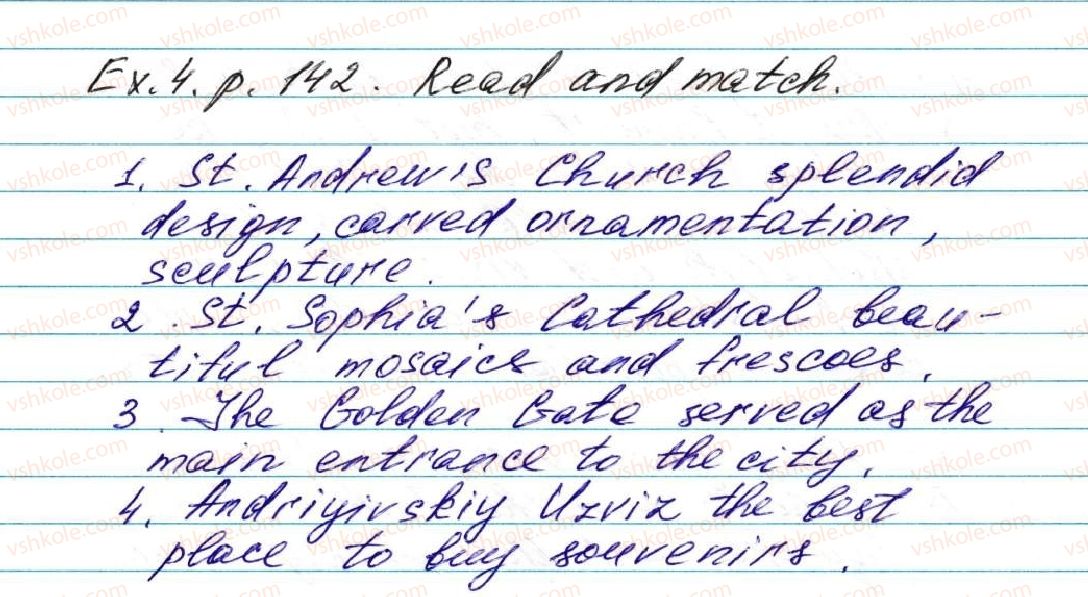 Ex. 4. p. 142. Read and match.
1. St. Andrew's Church splendid
design, carved ornamentation,
sculpture.
2. St. Sophia's Cathedral beau-
tiful mosaics and frescoes.
3. The Golden Gate served as the
main entrance to the city.
4. Andriyivskiy Uzviz the best
place to buy souvenirs.
vshkole.com